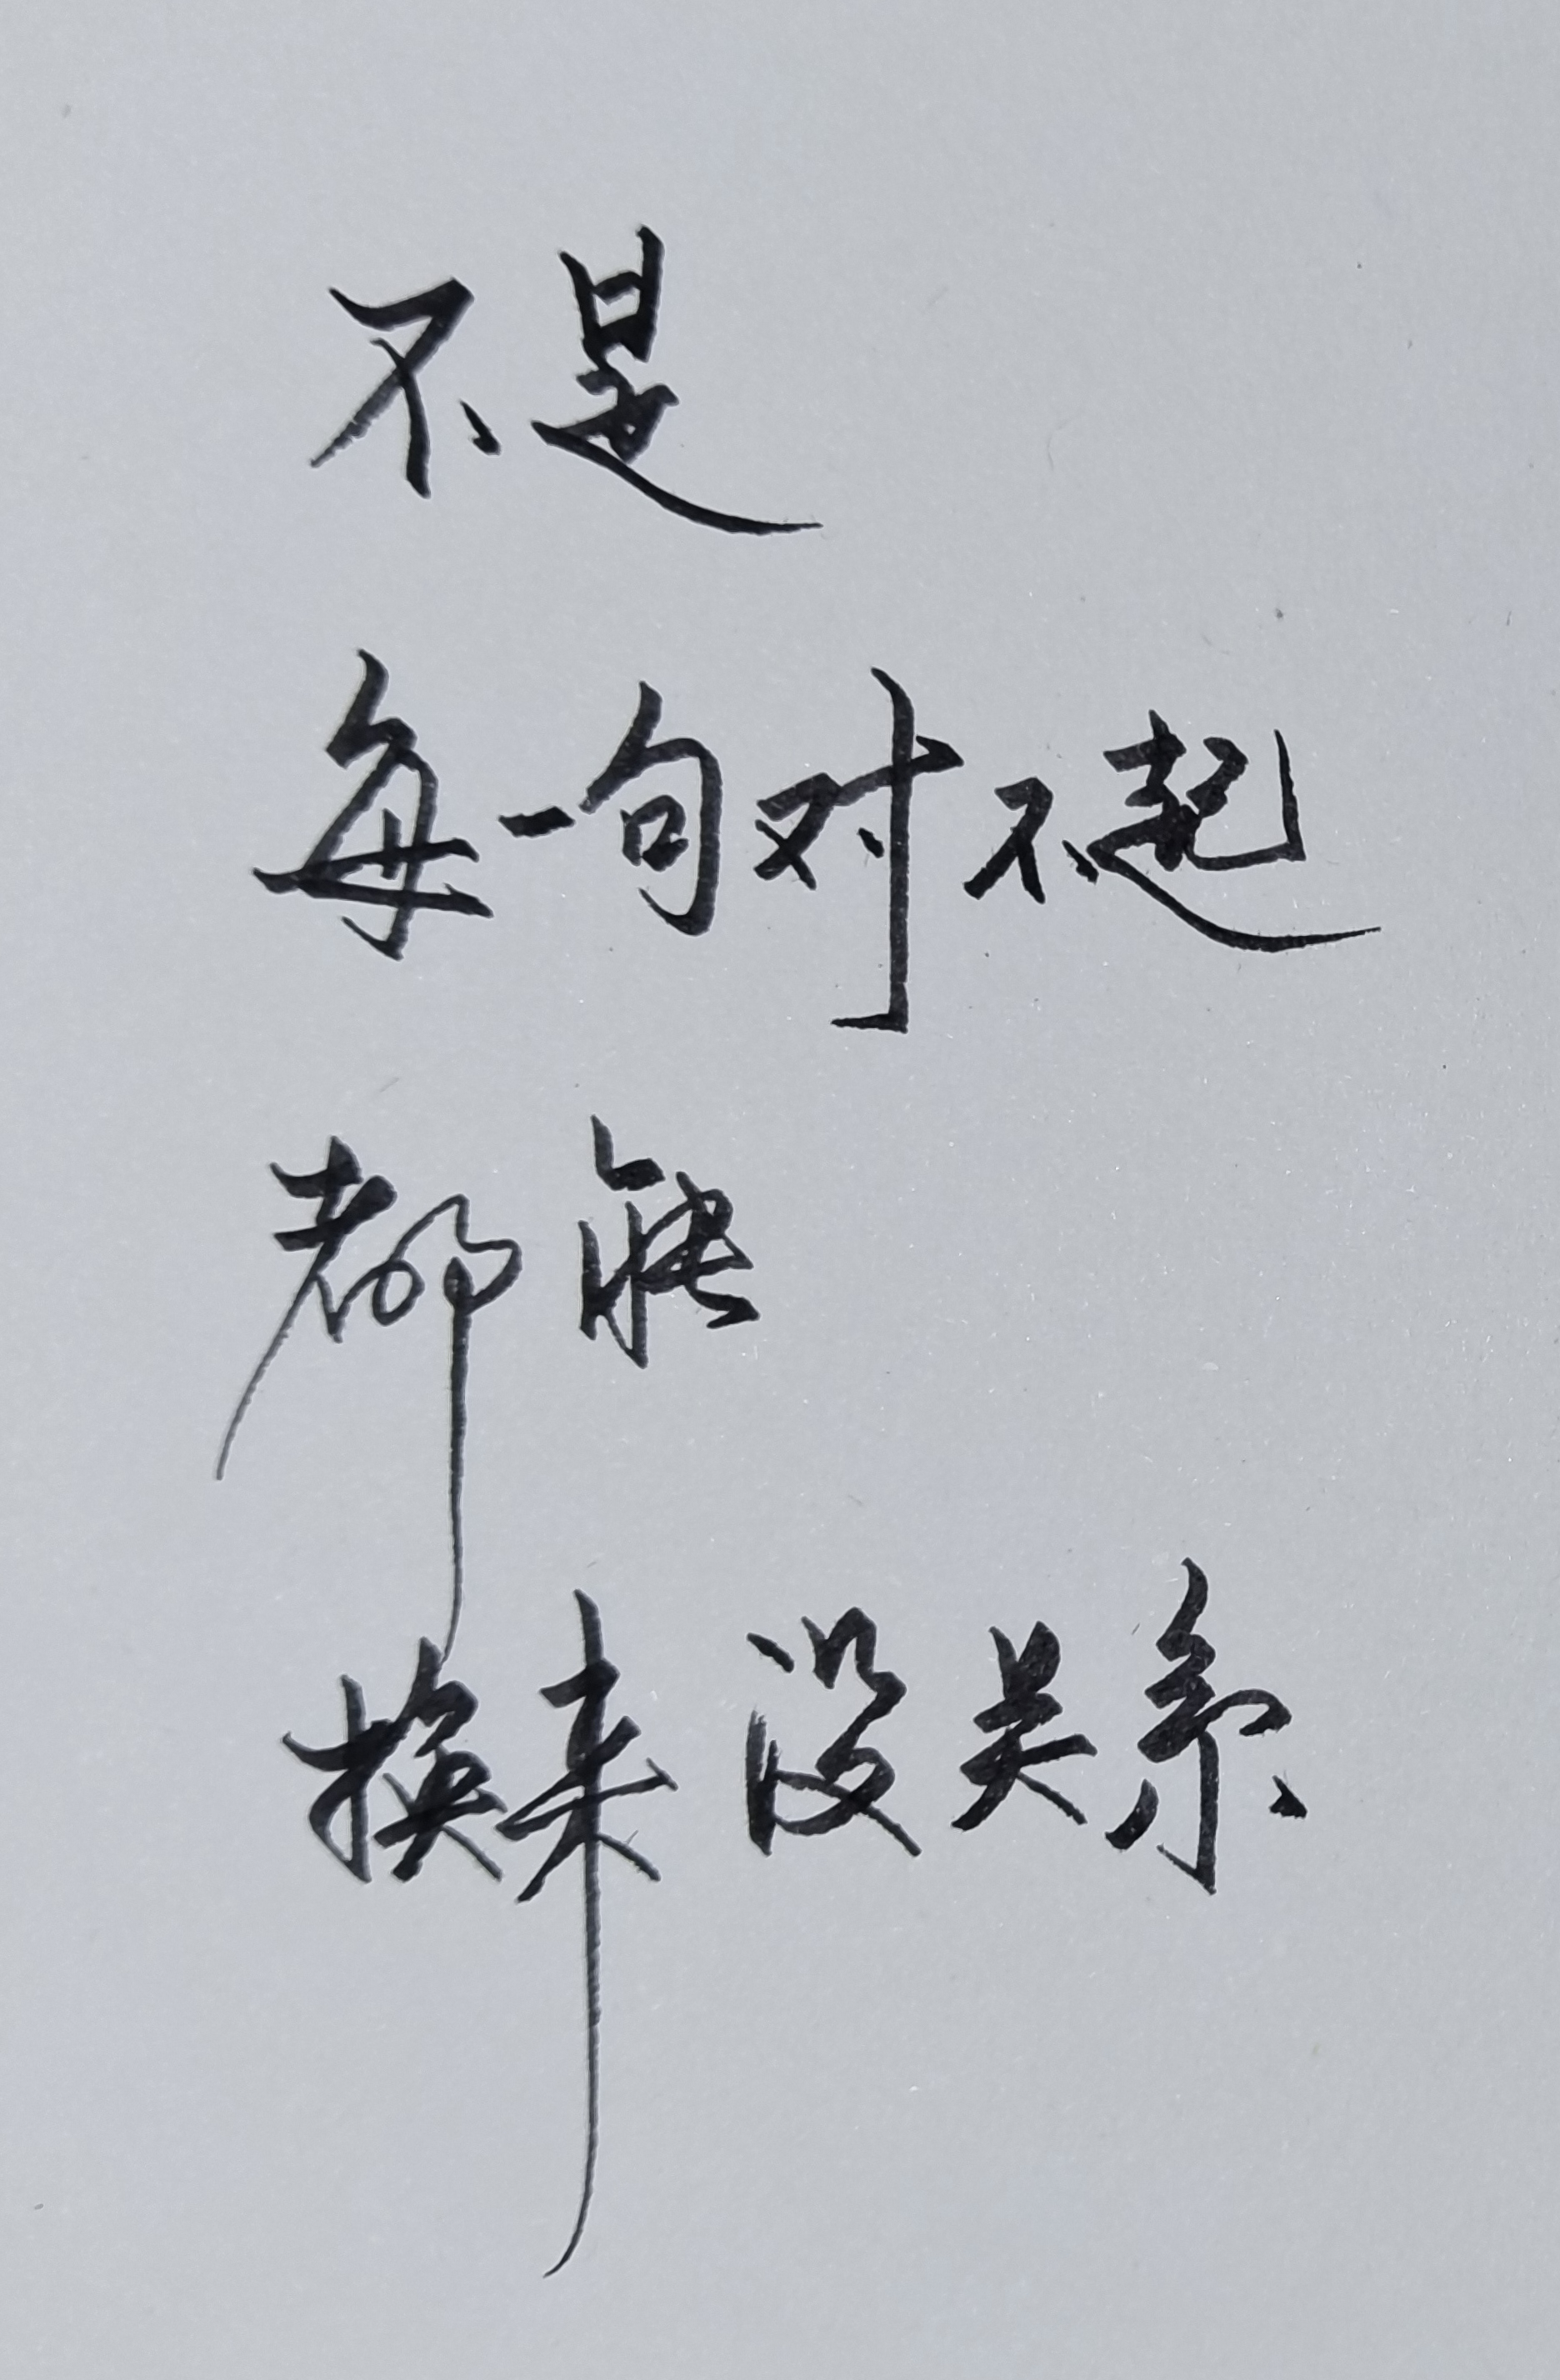 不是
每一句对不起
都能
换来没关系